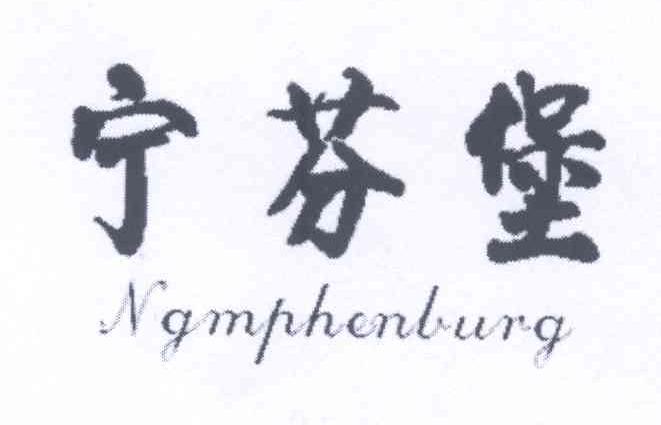 宁芬堡
Ngmphenburg